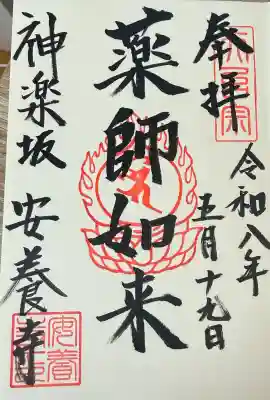 奉拝
令和八年
五月十九日
薬師如来
神楽坂
安養寺
天台宗
安養寺